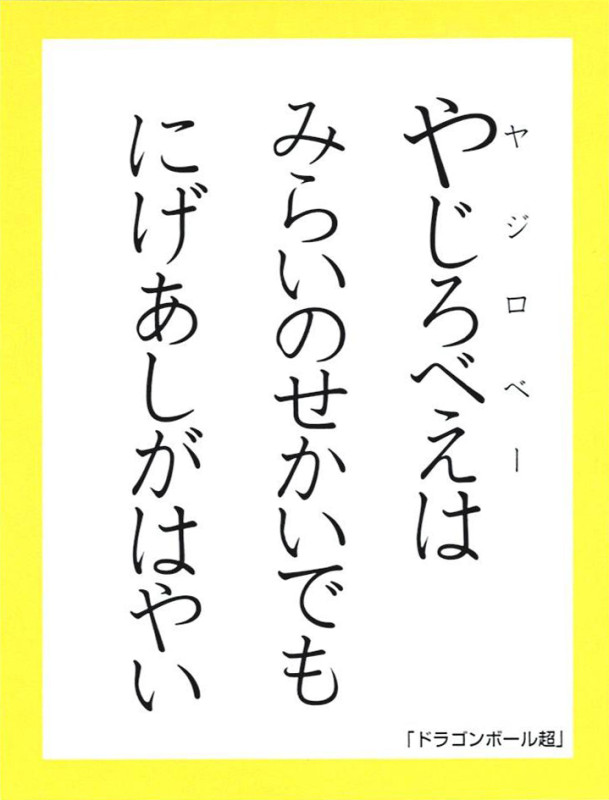 やじろべえは
ヤジロベー
みらいのせかいでも
にげあしがはやい
「ドラゴンボール超」